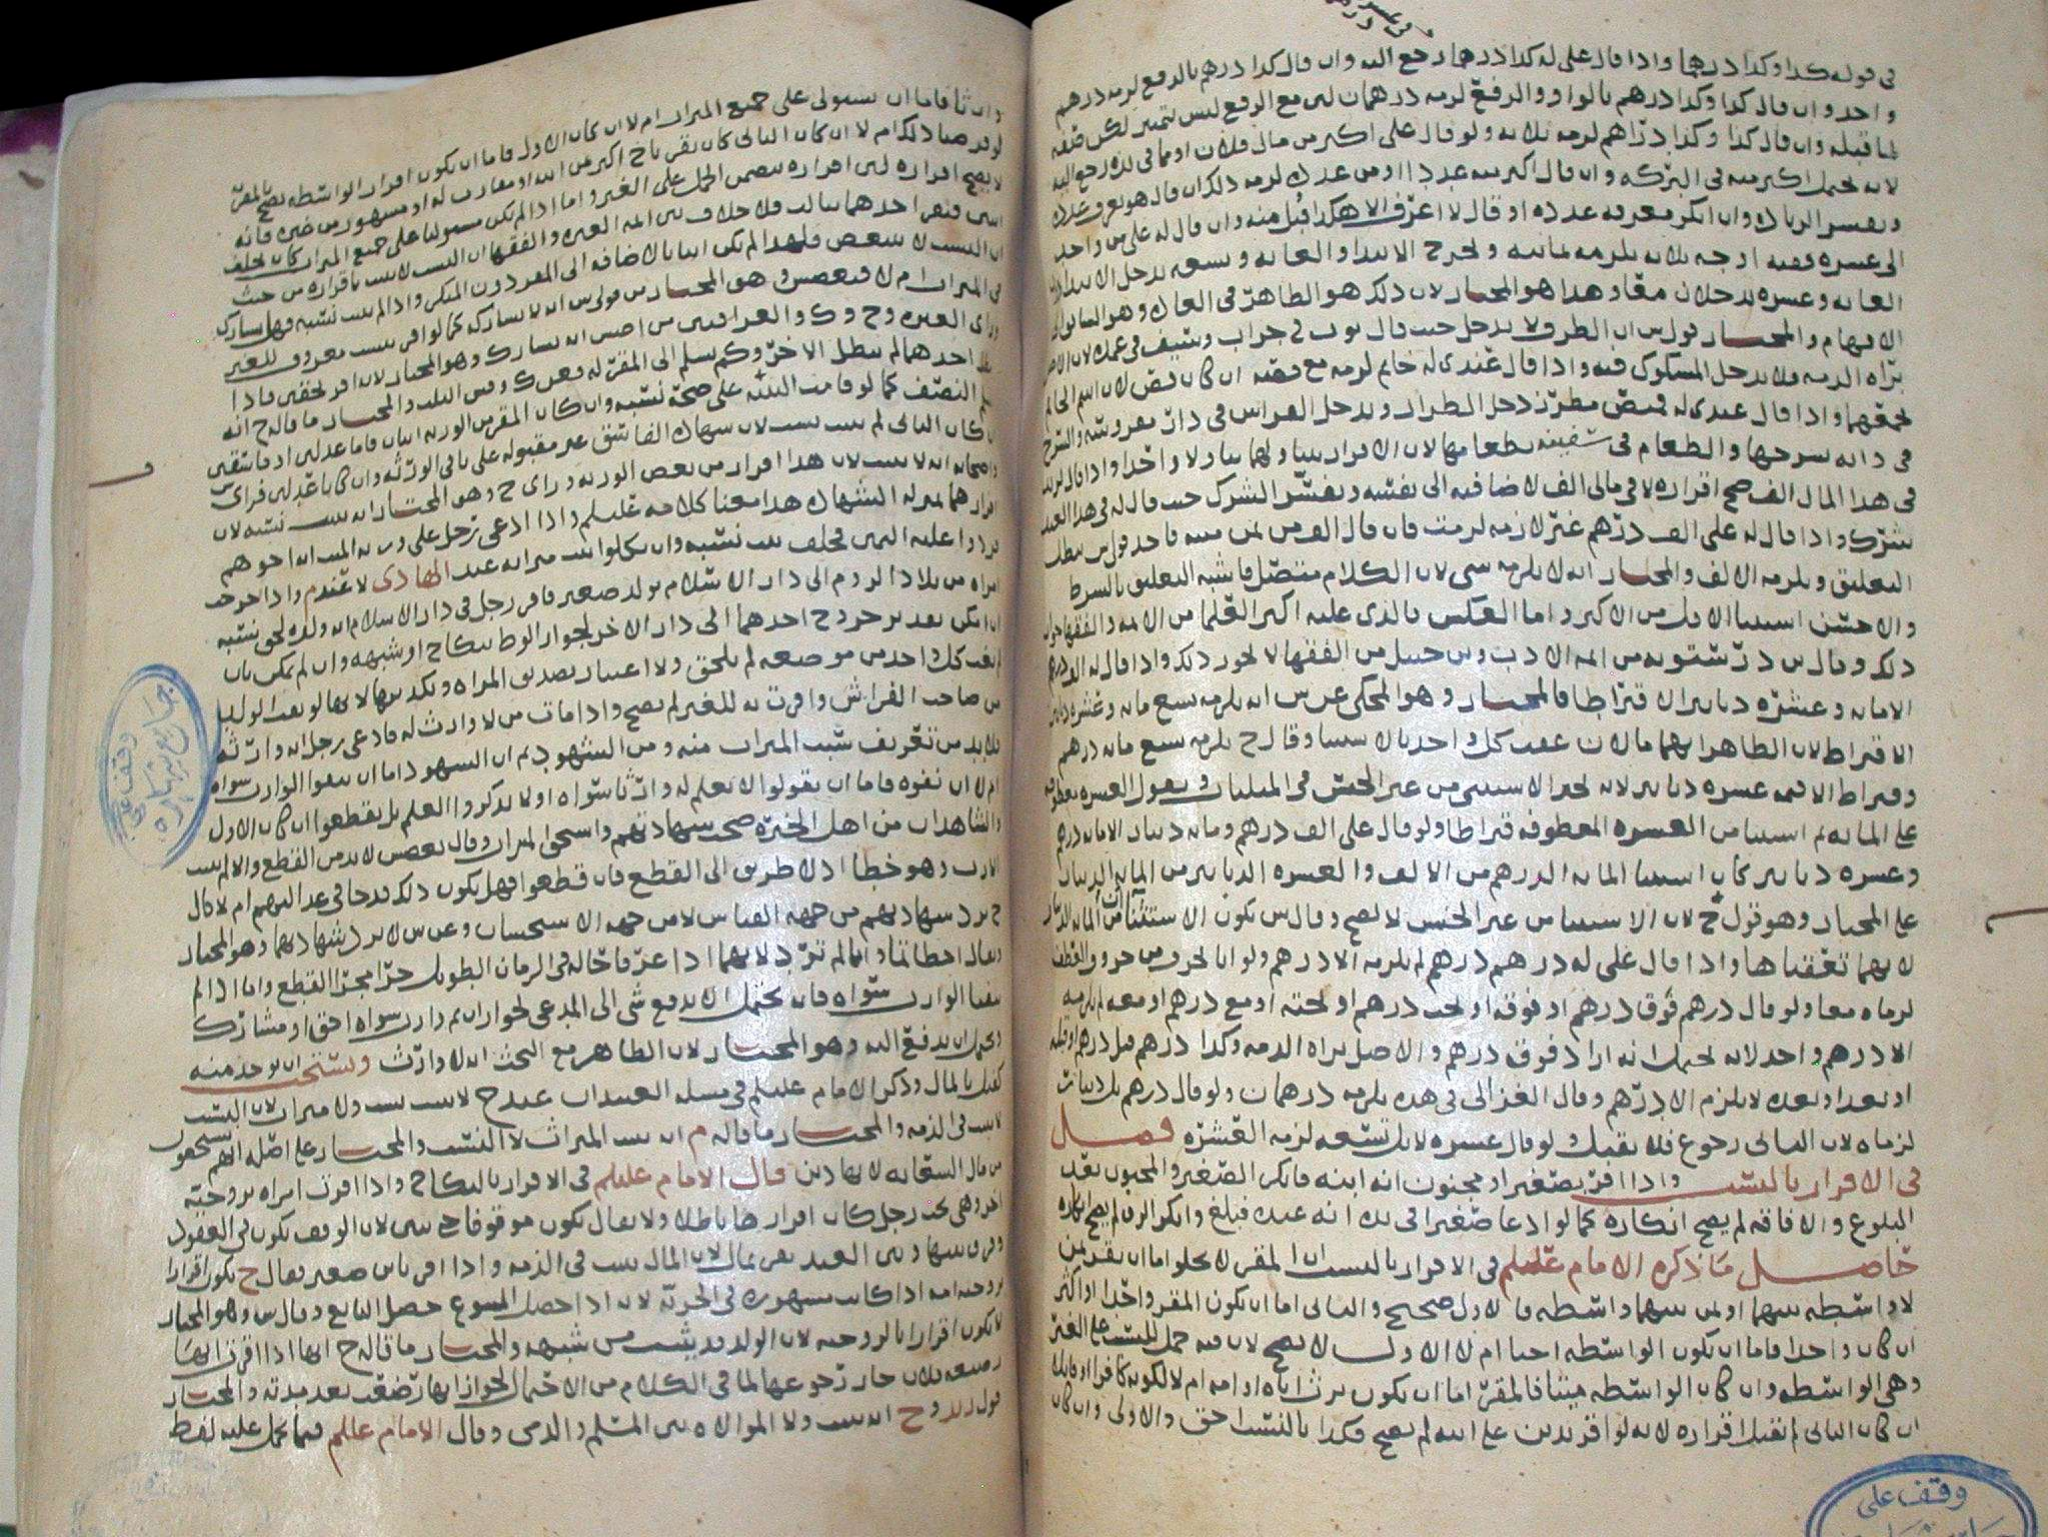 في قوله كذا وكذا درهما واذا قال على له كذا درهما رجع اليه وان قال كذا درهم بالرفع لزمه درهم
واحد وان قال كذا وكذا درهم بالواو والرفع لزمه درهمان لان مع الرفع ليس بتمييز لكن صفة
لما قبله وان قال كذا وكذا دراهم لزمه ثلاثة ولو قال على اكثر من مال فلان او مما في يده رجع اليه
لانه يحتمل اكثر منه في البركة وان قال اكثر منه عددا ومن عدل لزمه ذلك
ويفسر الزيادة وان انكر معرفة عدده او قال لا اعرف الا هكذا قبل منه وان قال له على من واحد
الى عشره ففيه اوجه ثلاثة يلزمه ثمانية ويخرج الابتدا والغاية وتسعه يدخل الابتدا
الغاية وعشره يدخلان معا وهذا هو المختار لان ذلك هو الظاهر في العادة وهو السابق الى
الافهام والمختار قول س ان الظرف لا يدخل حيث قال ثوب في جراب وسيف في غمده لان الاصل
براه الذمه فلا يدخل المشكوك فيه واذا قال عندي له خاتم لزمه مع فصه ان كان فص لان اسم الخاتم
يجمعهما واذا قال عندي له قميص مطرز دخل الطراز ويدخل الفراش في دار مفروشه والسرج
في دابه بسرجها والطعام في سفينه بطعامها لان الاقرار يتناولهما تناولا واحدا واذا قال لزيد
في هذا المال الف صح اقراره لا في مالي الف لاضافته الى نفسه ويفسر الشرك حيث قال له في هذا العبد
شرك واذا قال له على الف درهم غير لازمه لزمت فان قال الف من ثمن ميته فاحد قولي س يبطل
التعليق ويلزمه الالف والمختار انه لا يلزمه شي لان الكلام متصل فاشبه التعليق بالشرط
والاحسن استثنا الاقل من الاكثر واما العكس فالذي عليه اكثر العلما من الائمه والفقها جواز
ذلك وقال بن درستويه من ائمه الادب وبن حنبل من الفقها لا يجوز ذلك واذا قال له الف درهم
الا مايه وعشره دنانير الا قيراطا فالمختار وهو المحكي عن س انه يلزمه تسع مايه وعشره دنانير
الا قيراط لان الظاهر انهما مالان عقب كل واحد بالاستثنا وقال ح يلزمه تسع مايه درهم
وقيراط الا قيمه عشره دنانير لانه يجيز الاستثنى من غير الجنس في المثليات ويقول العشره معطوفه
على المايه ثم استثنا من العشره المعطوفه قيراطا ولو قال على الف درهم ومايه دينار الا مايه درهم
وعشره دنانير كان استثنا المايه الدرهم من الالف والعشره الدنانير من المايه الدينار
على المختار وهو قول ح لان الاستثنا من غير الجنس لا يصح وقال س يكون الاستثنا من المايه الدينار
لانهما تعقباها واذا قال على له درهم درهم لم يلزمه الا درهم ولو اتا بحرف من حروف العطف
لزماه معا ولو قال درهم فوق درهم او فوقه او تحت درهم او تحته او مع درهم او معه لم يلزمه
الا درهم واحد لانه يحتمل انه اراد فوق درهم والاصل براه الذمه وكذا درهم قبل درهم او قبله
او بعد او بعده لا يلزم الا درهم وقال الغزالي في هذه يلزمه درهمان ولو قال درهم بل ديناران
لزماه لان الثاني رجوع فلا يقبل ولو قال عشره لا بل تسعه لزمه العشره فصل
في الاقرار بالنسب واذا اقر بصغير او مجنون انه ابنه فانكر الصغير والمجنون بعد
البلوغ والافاقه لم يصح انكاره كما لو ادعا صغيرا في يده انه عبده فبلغ وانكر الرق لم يصح انكاره
حاصل ما ذكره الامام علىلم في الاقرار بالنسب ان المقر لا يخلو اما ان يقر بمن
لا واسطه بينهما او بمن بينهما واسطه فالاول صحيح والثاني اما ان يكون المقر واحدا او اكثر
ان كان واحدا فاما ان يكون الواسطه احيا ام لا الاول لا يصح لان فيه حمل للنسب على الغير
وهي الواسطه وان كان الواسطه ميتا فالمقر اما ان يكون يرث اباه او امه ام لا لكونه كافرا او قاتلا
ان كان الثاني لم يقبل اقراره لانه لو اقر بدين على ابيه لم يصح فكذا بالنسب احق والاولى وان كان
وارثا فاما ان يستولي على جميع الميراث ام لا ان كان الاول فاما ان يكون اقرار الواسطه يصح بالمقر
لو قدرنا ذلك ام لا ان كان الثاني كان يقر باخ اكبر من ابيه او مقارب له او مشهور من غيره فانه
لا يصح اقراره لان اقراره يتضمن الحمل على الغير واما اذا لم يكن مستوليا على جميع الميراث كان يخلف
ابنين فيقر احدهما بثالث فلا خلاف بين ائمه العتره والفقها ان النسب لا يثبت باقراره من حيث
ان النسب لا يتبعض فلهذا لم يكن ابنا بالاضافه الى المقر دون المنكر واذا لم يثبت نسبه فهل يشارك
في الميراث ام لا فبعض وهو المختار من قولي س انه لا يشاركه كما لو اقر بنسب معروف للغير
وراي العتره وح وك والعراقيين من اصش انه يشارك وهو المختار لانه اقر بحقين فاذا
بطل احدهما لم يبطل الاخر وكم يسلم الى المقر له فعن ك وص الثلث والمختار ما قاله ح انه
يسلم النصف كما لو قامت البينه على صحة نسبه وان كان المقر من الورثه اثنان فاما عدلين او فاسقين
ان كان الثاني لم يثبت نسب لان شهاده الفاسق غير مقبوله على باقي الورثه وان كانا عدلين فراي س
واصحابه انه لا يثبت لان هذا اقرار من بعض الورثه وراي ح وهو المختار انه يثبت نسبه لان
اقرارهما بمنزله الشهاده هذا معنا كلامه علىلم واذا ادعى رجل على ورثه الميت انه اخوهم
يردوا عليه اليمين فيحلف ثبت نسبه وان نكلوا ثبت ميراثه عند الهادى لا عند م واذا خرجت
امراه من بلاد الروم الى دار الاسلام بولد صغير فاقر رجل في دار الاسلام انه ولده لحق نسبه
ان امكن بعد تر خروج احدهما الى دار الاخر لجواز الوطا بنكاح او شبهه وان لم يمكن بان
لم يغب كل واحد من موضعه لم يلحق ولا اعتبار بتصديق المراه وتكذيبها لانها لو نفت الولد
من صاحب الفراش واقرت به للغير لم يصح واذا مات من لا وارث له فادعى رجل انه وارثه
فلا بد من تعريف سبب الميراث منه ومن الشهود ثم ان الشهود اما ان ينفوا الوارث سواه
ام لا ان نفوه فاما ان يقولوا لا نعلم له وارثا سواه او لا يذكروا العلم بل يقطعوا ان كان الاول
والشاهدان من اهل الخبره صحت شهادتهم واستحق الميراث وقال بعضش لا بد من القطع والا لم يثبت
الارث وهو خطا اذ لا طريق الى القطع فان قطعوا فهل يكون ذلك قدحا في عدالتهم ام لا قال
ح ترد شهادتهم من جهه القياس لا من جهه الاستحسان وعن س لا ترد شهادتهما وهو المختار
ويقال اخطاتما وانما لم ترد لانهما اذا عرفا حاله في الزمان الطويل جرا مجرا القطع واما اذا لم
ينفيا الوارث سواه فانه يحتمل الا يدفع شي الى المدعي لجواز ان ثم وارث سواه احق او مشارك
ويحتمل ان يدفع اليه وهو المختار لان الظاهر مع البحث انه لا وارث ويستحب ان يوخذ منه
كفيل بالمال وذكر الامام علىلم في مسله العبدان عند ح لا يثبت نسب ولا ميراث لان النسب
لا يثبت في الذمه والمختار ما قاله م انه يثبت الميراث لا النسب والمختار على اصله انهم يستحقون
من مال السقايه لا بهاذين قال الامام علىلم في الاقرار بالنكاح واذا اقرت امراه بزوجيه
اخر وهي تحت رجل كان اقرارها باطلا ولا يقال يكون موقوفا لان الوقف يكون في العقود
وفرق بينها وبين العبد يقر بمال لان المال يثبت في الذمه واذا اقر بابن صغير فقال ح يكون اقرارا
بزوجيه امه اذا كانت مشهوره في الحريه لانه اذا حصل المتبوع حصل التابع وقال س وهو المختار
لا يكون اقرارا بالزوجيه لان الولد قد يثبت من شبهه والمختار ما قاله ح انها اذا اقرت انها
رضيعه فلان جاز رجوعها لما في الكلام من الاحتمال لجواز انها رضعت بعد مدته والمختار
قول وح انه يثبت ولا الموالاه بين المسلم والذمي وقال الامام علىلم فيما يحمل عليه لفظ
وقف على
جامع شهاره
وقف على